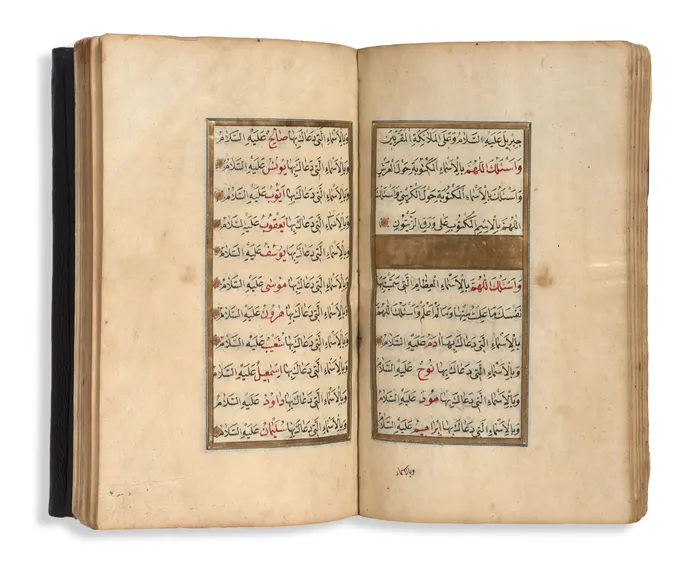 جبريل عليه السلام وعلى الملائكة المقربين
واسئلك اللهم بالاسماء المكتوبة حول العرش
وباسئلك بالاسماء المكتوبة حول الكرسي واسئلك
اللهم بالاسم المكتوب على ورق الزيتون
واسئلك اللهم بالاسماء العظام التي سميت بها
نفسك ما علمت منها وما لم اعلم واسئلك اللهم
بالاسماء التي دعاك بها ادم عليه السلام
وبالاسماء التي دعاك بها نوح عليه السلام
وبالاسماء التي دعاك بها هود عليه السلام
وبالاسماء التي دعاك بها ابراهيم عليه السلام
وبالاسماء
وبالاسماء التي دعاك بها صالح عليه السلام
وبالاسماء التي دعاك بها يونس عليه السلام
وبالاسماء التي دعاك بها ايوب عليه السلام
وبالاسماء التي دعاك بها يعقوب عليه السلام
وبالاسماء التي دعاك بها يوسف عليه السلام
وبالاسماء التي دعاك بها موسى عليه السلام
وبالاسماء التي دعاك بها هرون عليه السلام
وبالاسماء التي دعاك بها شعيب عليه السلام
وبالاسماء التي دعاك بها اسمعيل عليه السلام
وبالاسماء التي دعاك بها داود عليه السلام
وبالاسماء التي دعاك بها سليمان عليه السلام